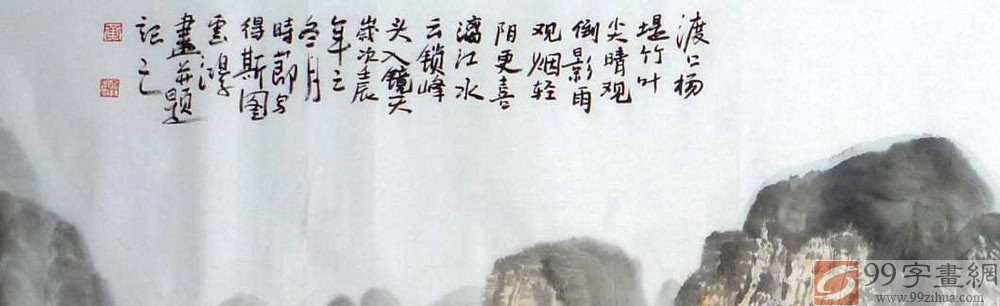 渡口杨
堤竹叶
尖晴观
倒影雨
观烟轻
阴更喜
漓江水
云锁峰
头入镜天
岁次壬辰
年之
冬月
时节写
得斯图
云泽
画并题
记之
99字畫網
www.99zihua.com